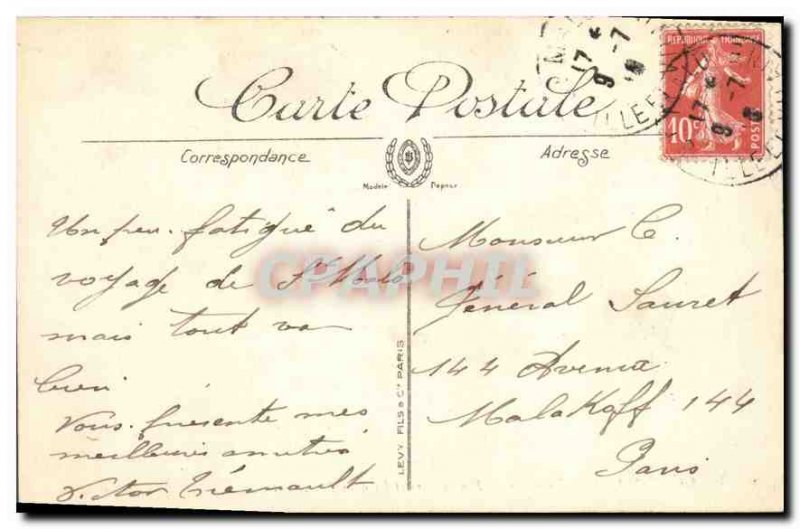 Carte Postale
Correspondance
Adresse
REPUBLIQUE FRANCAISE
10c
POSTES
17 *
9 -7
17 *
9 -7
ILLE ET
ILLE ET
Un peu fatigué du
voyage de St Malo
mais tout va
bien
Vous présente mes
meilleures amitiés
Victor Trémault
LEVY FILS & Cie PARIS
Monsieur C.
Général Sauret
144 Avenue
Malakoff 144
Paris
CPAPHIL